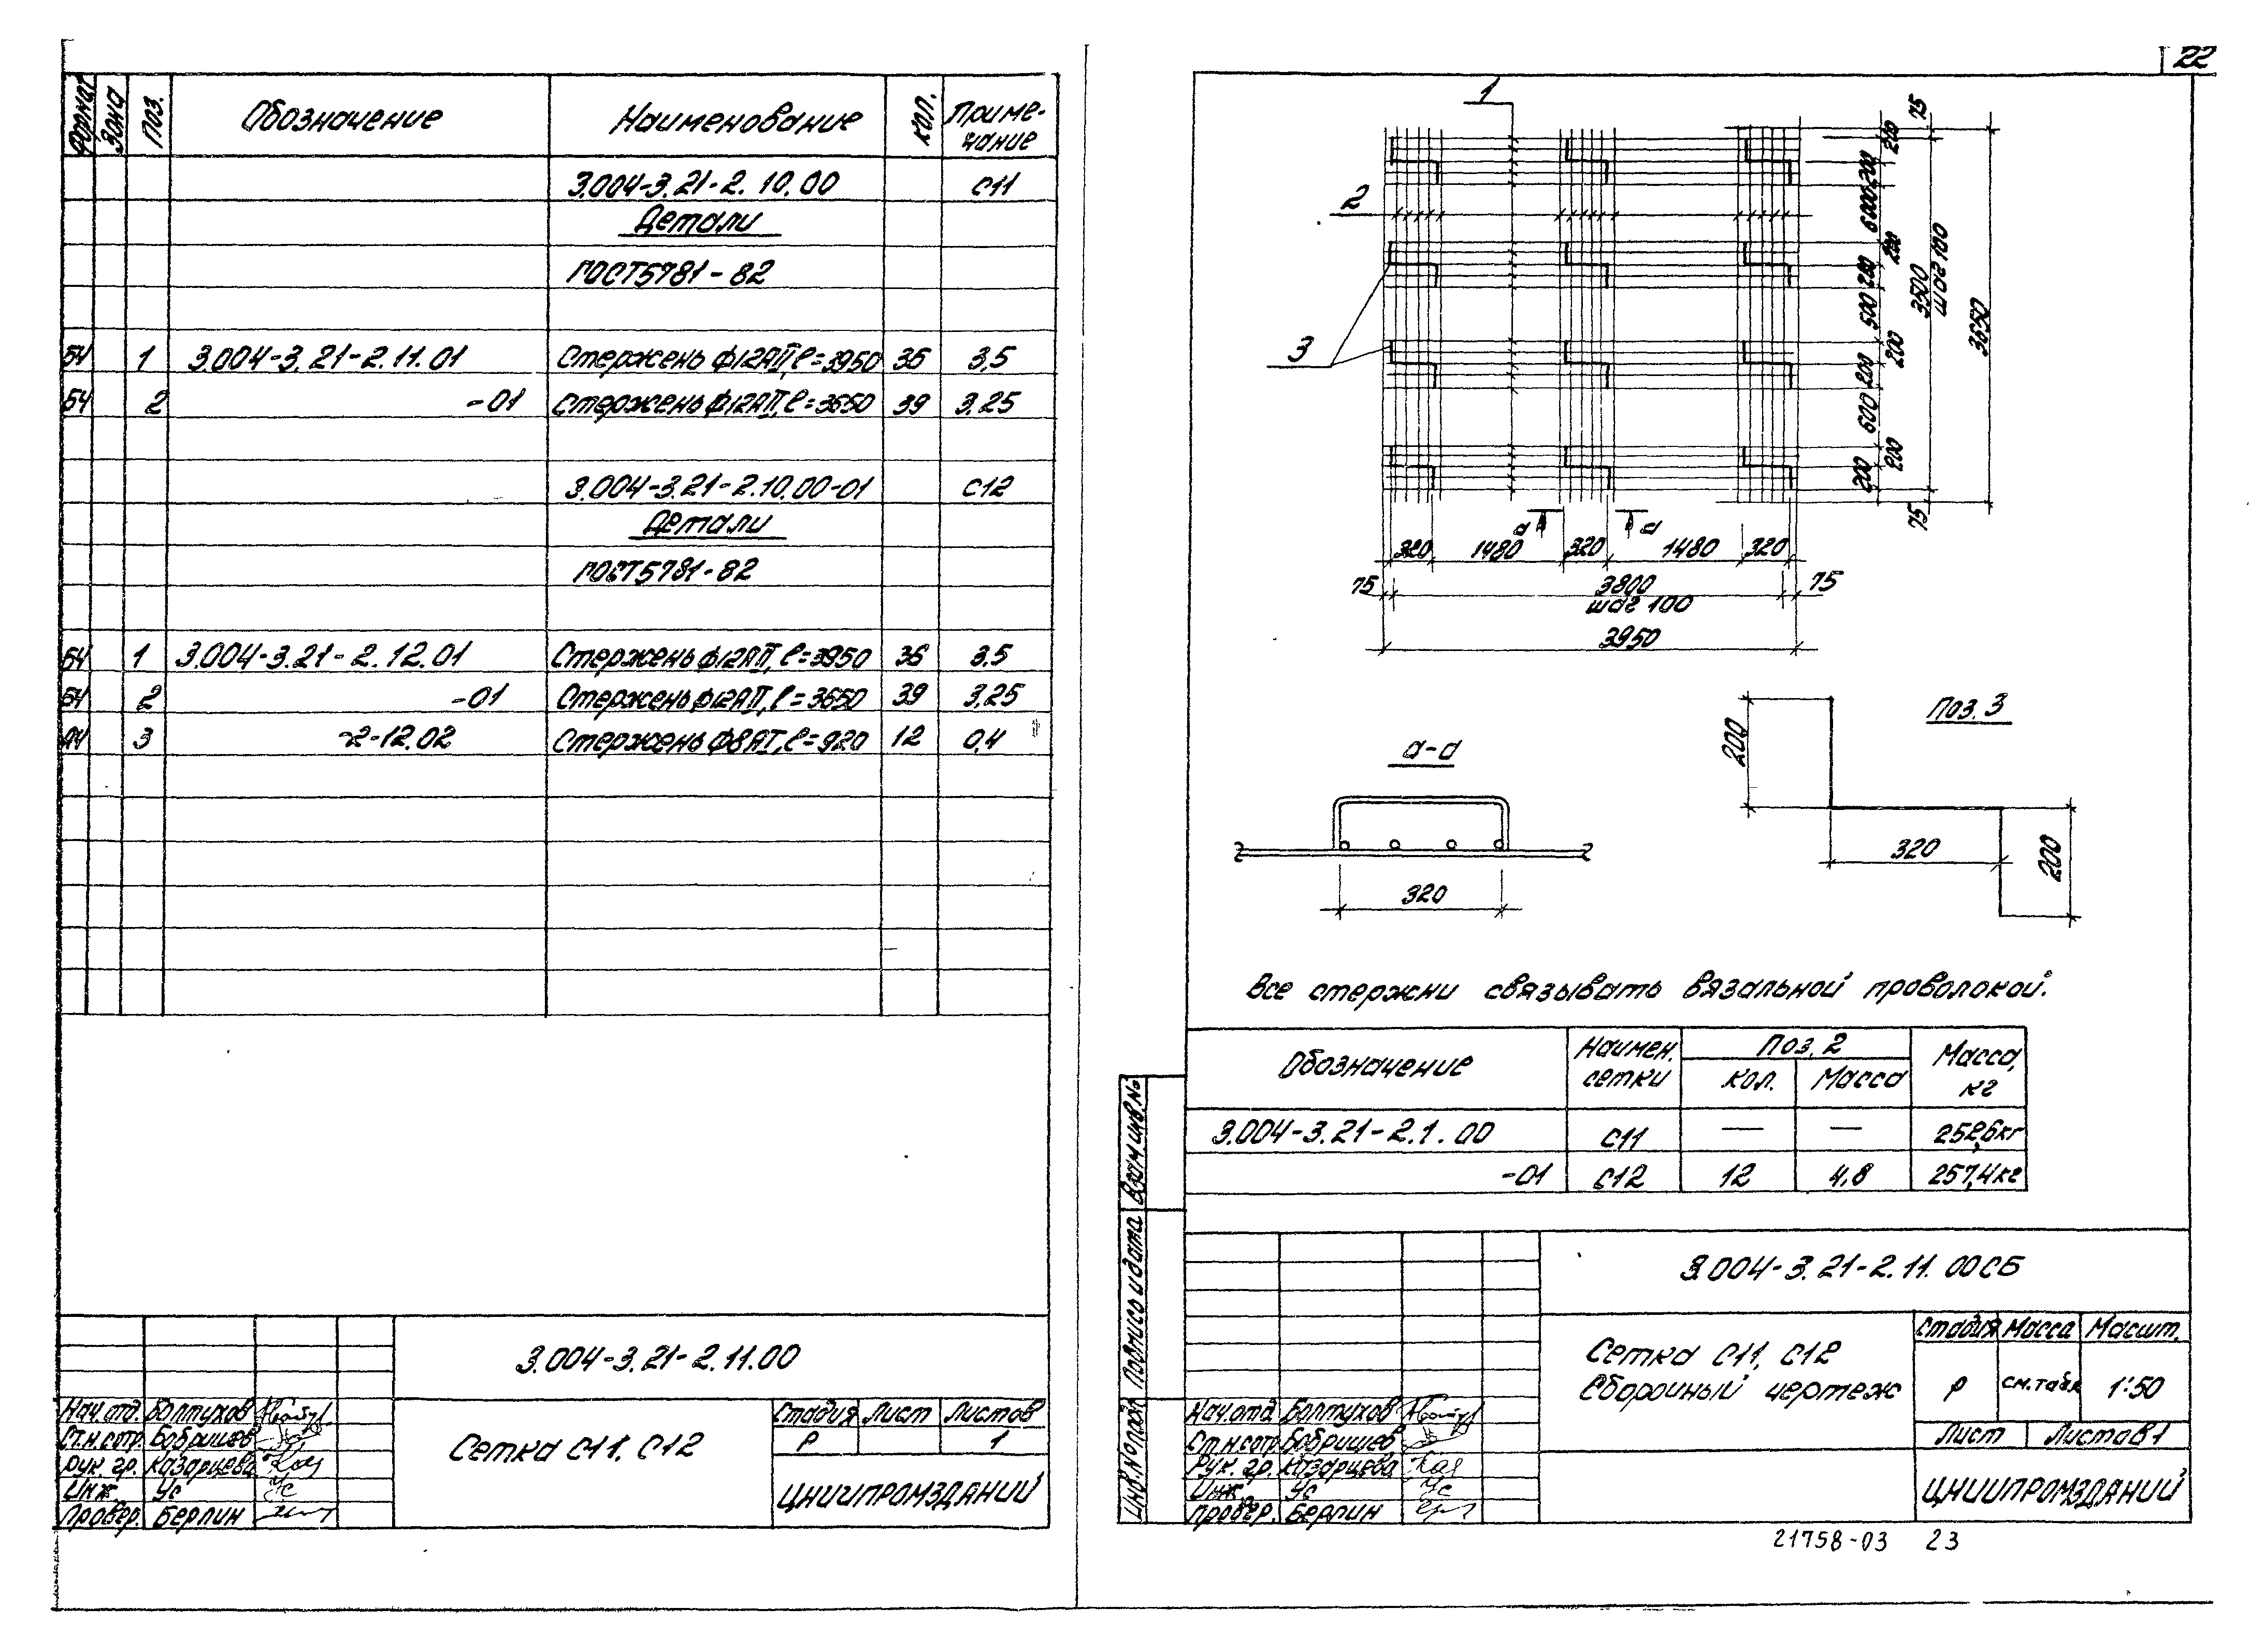 22
Формат Зона Поз. Обозначение Наименование Кол. Приме-
чание
3.004-3.21-2.10.00 С11
Детали
ГОСТ5781-82
БЧ 1 3.004-3.21-2.11.01 Стержень ф12АII, ℓ=3950 36 3,5
БЧ 2 -01 Стержень ф12АII, ℓ=3650 39 3,25
3.004-3.21-2.10.00-01 С12
Детали
ГОСТ5781-82
БЧ 1 3.004-3.21-2.12.01 Стержень ф12АII, ℓ=3950 36 3.5
БЧ 2 -01 Стержень ф12АII, ℓ=3650 39 3,25
3 -2-12.02 Стержень ф8АI, ℓ=920 12 0,4
3.004-3.21-2.11.00
Нач.отд. Болтухов
Ст.н.сотр. Бобришев
Рук. гр. Казарцева
Инж Ус
Провер. Берлин
Сетка С11, С12
Стадия Лист Листов
Р 1
ЦНИИПРОМЗДАНИЙ
1
2
3
75
200
200
600
200
200
500
200
200
600
200
200
75
3500
шаг 100
3650
а а
320 1480 320 1480 320
75 3800 75
шаг 100
3950
Поз. 3
200
320
200
а-а
320
Все стержни связывать вязальной проволокой.
Обозначение Наимен. сетки Поз. 2 Масса, кг
Кол. Масса
3.004-3.21-2.1.00 С11 — — 252,6кг
-01 С12 12 4,8 257,4кг
Инв.№подл Подпись и дата Взам инв.№
3.004-3.21-2.11.00СБ
Сетка С11, С12
Сборочный чертеж
Стадия Масса Масшт.
Р см.табл 1:50
Лист Листов 1
Нач.отд Болтухов
Ст.н.сотр Бобришев
Рук. гр. Казарцева
Инж Ус
Провер. Берлин
ЦНИИПРОМЗДАНИЙ
21758-03 23